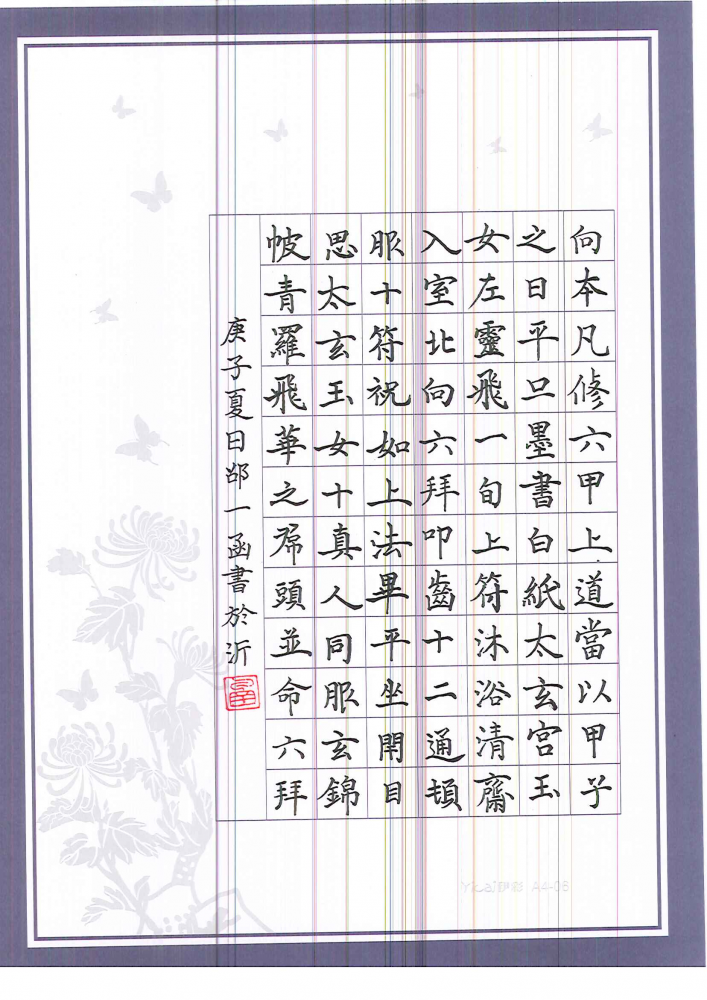 向本凡修六甲上道當以甲子
之日平旦墨書白紙太玄宮玉
女左靈飛一旬上符沐浴清齋
入室北向六拜叩齒十二通頓
服十符祝如上法畢平坐閇目
思太玄玉女十真人同服玄錦
帔青羅飛華之帬頭並命六拜
庚子夏日邵一函書於沂
A4-06